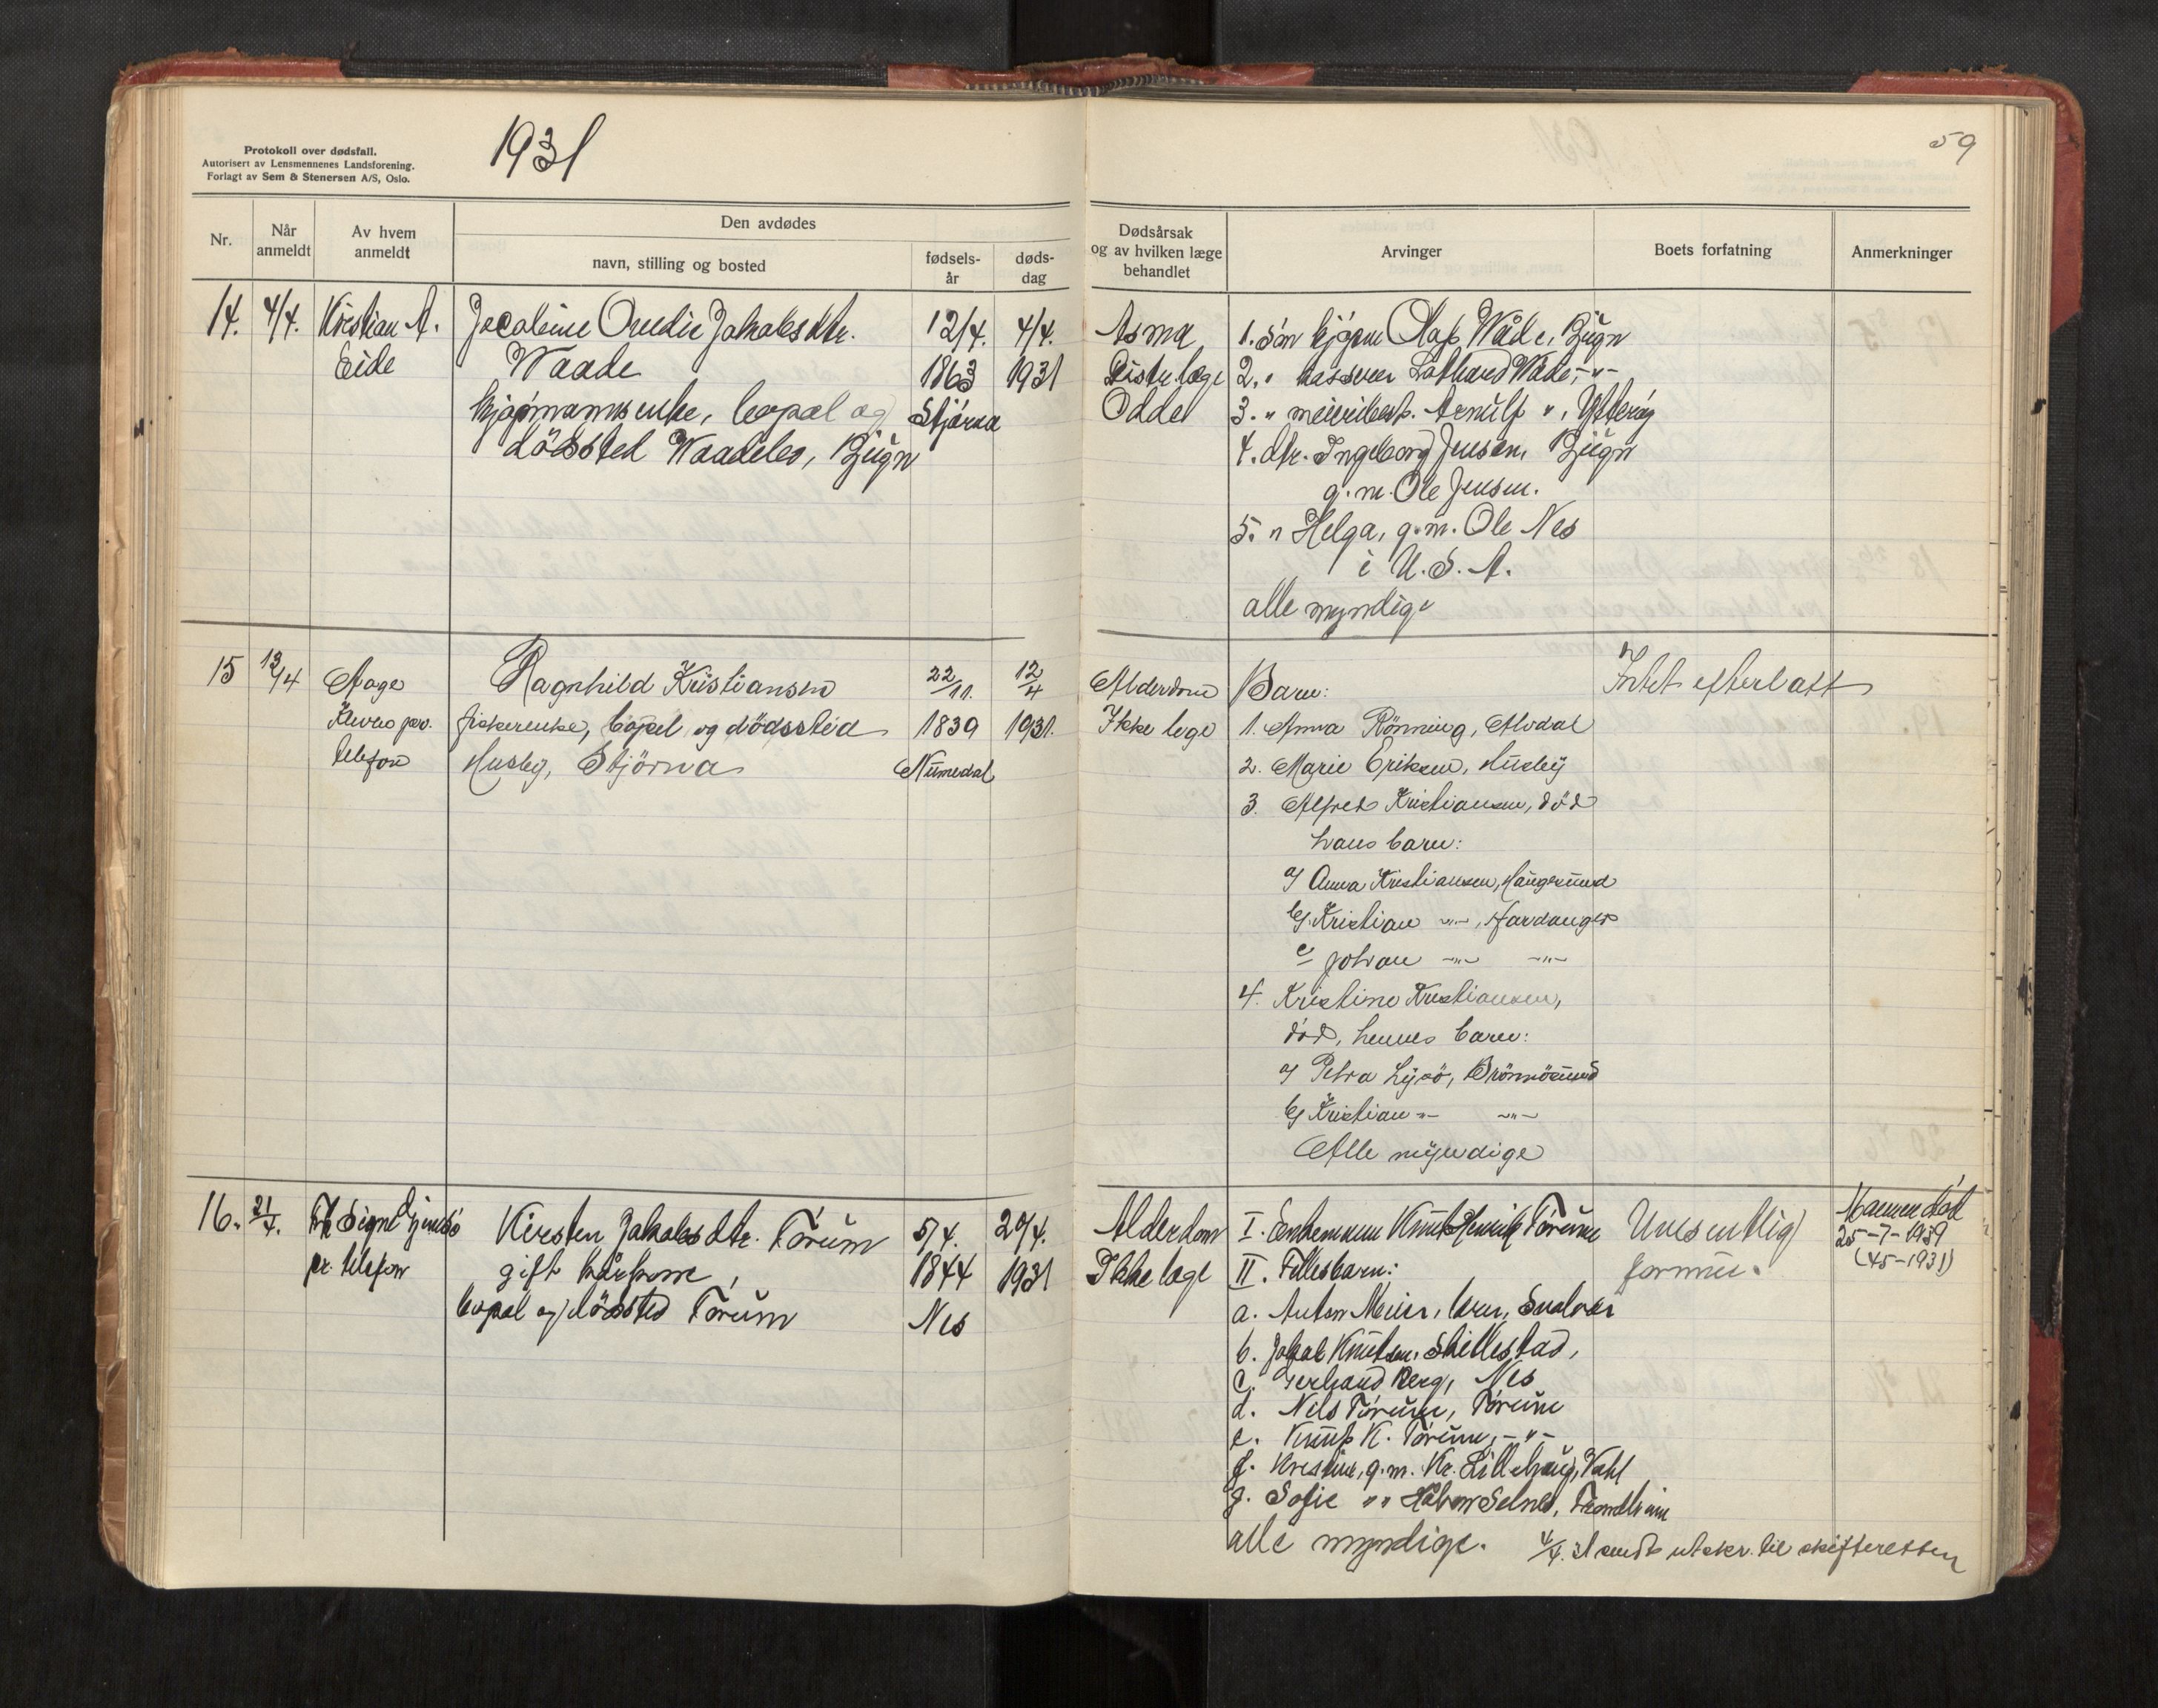 Protokoll over dødsfall.
Autorisert av Lensmennenes Landsforening.
Forlagt av Sem & Stenersen A/S, Oslo.
1931
59
Nr.
Når anmeldt
Av hvem anmeldt
Den avdødes
navn, stilling og bosted
fødsels-år
døds-dag
Dødsårsak og av hvilken læge behandlet
Arvinger
Boets forfatning
Anmerkninger
14. 4/4. Kristian A. Eide
Jacobine Ovedie Jakobsdtr.
Waade
kjøpmannsenke, bopæl og
dödssted Waadeles, Bjugn
12/4. 1863 Stjörna
4/4. 1931
Asma
Distr. læge
Odde
1. Sön kjøpm Olaf Wåde, Bjugn
2. " kasserer Lothard Wåde, -"-
3. " meieribest. Arnulf ", Ytteröy
4. dtr. Ingeborg Jensen, Bjugn
g. m. Ole Jensen.
5. " Helga, g. m. Ole Nes
i U. S. A.
alle myndige
15 13/4 Aage
Klever pr.
telefon
Ragnhild Kristiansen
fiskerenke, bopel og dödssted
Husby, Stjörna
22/11. 1839 Numedal
12/4 1931.
Alderdom
Ikke lege
Barn:
1. Anna Rönning, Alvdal
2. Marie Eriksen, Husby
3. Alfred Kristiansen, död
hans barn:
a/ Anna Kristiansen, Haugesund
b/ Kristian -"-, Hardanger
c/ Johan -"- -"-
4. Kristine Kristiansen,
död, hennes barn:
a/ Petra Lysö, Brönnösund
b/ Kristian -"- -"-
Alle myndige
Intet efterlatt
16. 21/4. Fr Signe Djupsö
pr. telefon
Kirsten Jakobsdtr. Törum
gift kårkone,
bopæl og dödssted Törum
5/4. 1844 Nes
20/4. 1931
Alderdom
Ikke læge
I. Enkemann Knut Henrik Törum
II. Fellesbarn:
a. Anton Meier, Svolvær
b. Jakob Knutsen, Skillestad,
c. Gerhard Berg, Nes
d. Nils Törum, Törum
e. Knut K. Törum, -"-
f. Kristine, g. m. Kr. Lillehaug, Vahl
g. Sofie " " Håkon Selnes, Trondheim
alle myndige.
Uvesentlig
formue.
Mannen död
25-7-1939
(45-1931)
4/4. 31 sendt utskr. til skifteretten